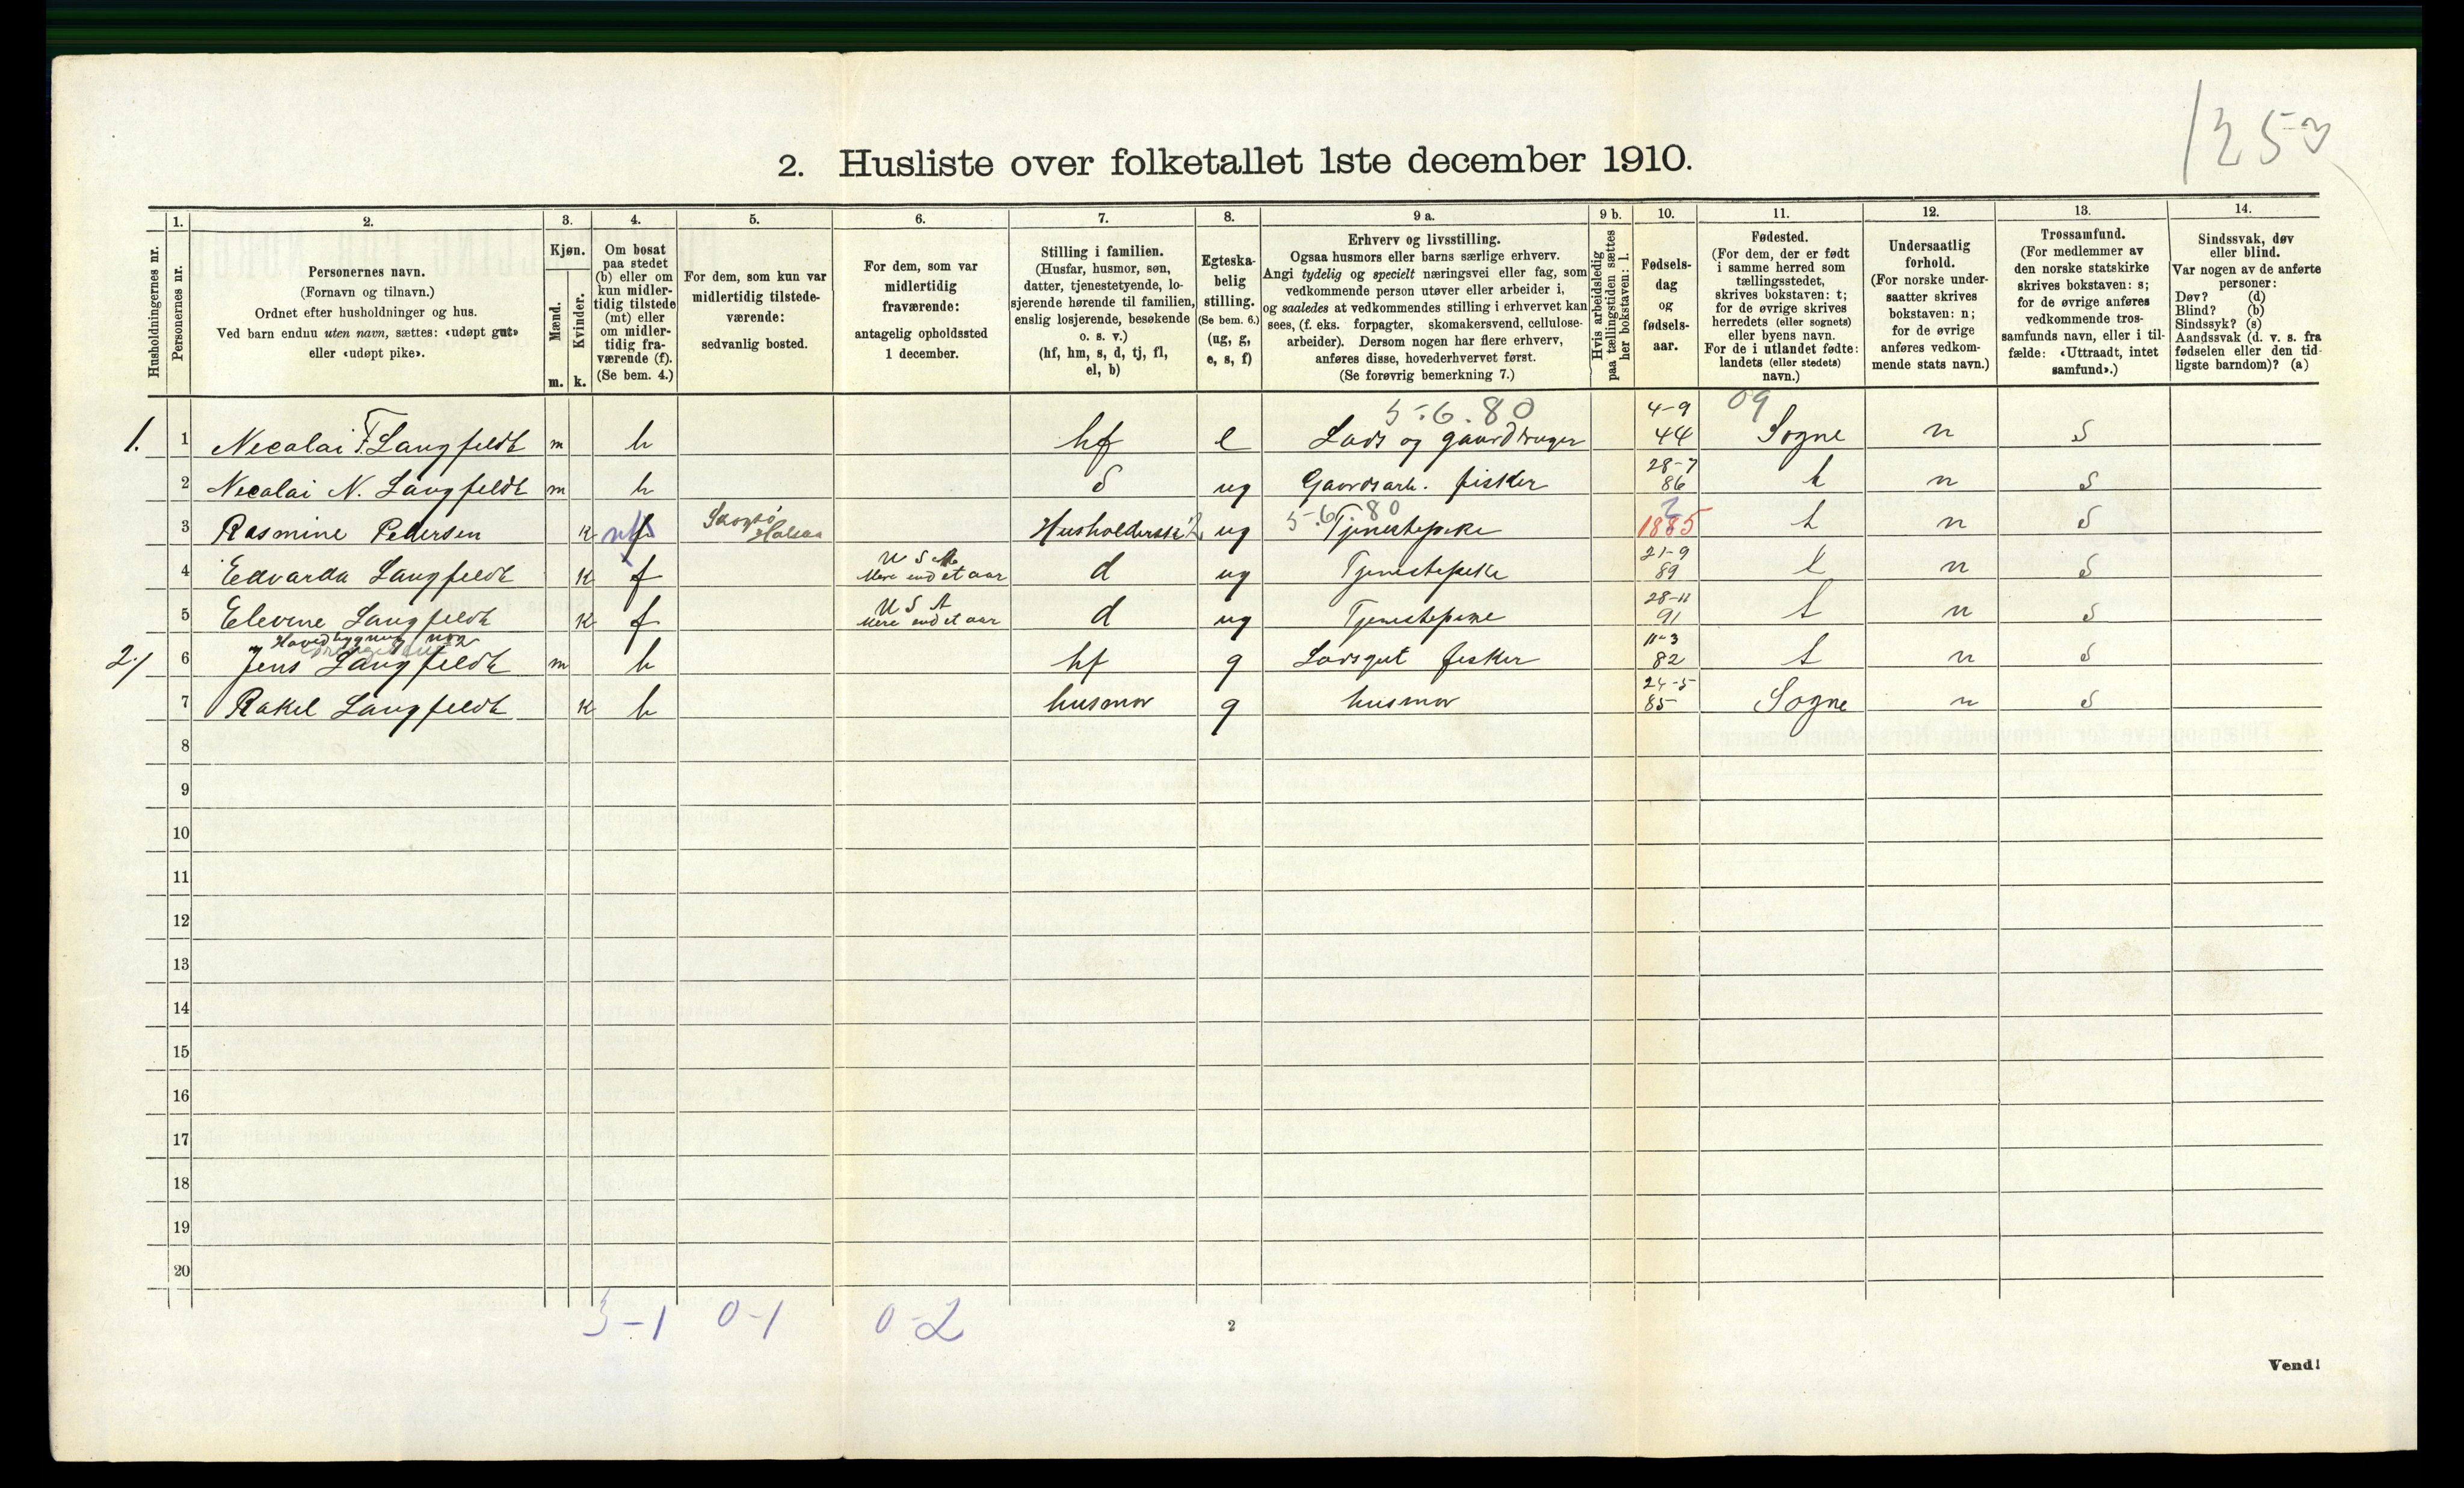 1250
2. Husliste over folketallet 1ste december 1910.
Husholdningernes nr.
1. Personernes nr.
2. Personernes navn. (Fornavn og tilnavn.) Ordnet efter husholdninger og hus. Ved barn endnu uten navn, sættes: «udøpt gut» eller «udøpt pike».
3. Kjøn. Mænd. m. Kvinder. k.
4. Om bosat paa stedet (b) eller om kun midlertidig tilstede (mt) eller om midlertidig fraværende (f). (Se bem. 4.)
5. For dem, som kun var midlertidig tilstedeværende: sedvanlig bosted.
6. For dem, som var midlertidig fraværende: antagelig opholdssted 1 december.
7. Stilling i familien. (Husfar, husmor, søn, datter, tjenestetyende, losjerende hørende til familien, enslig losjerende, besøkende o. s. v.) (hf, hm, s, d, tj, fl, el, b)
8. Egteskabelig stilling. (Se bem. 6.) (ug, g, e, s, f)
9 a. Erhverv og livsstilling. Ogsaa husmors eller barns særlige erhverv. Angi tydelig og specielt næringsvei eller fag, som vedkommende person utøver eller arbeider i, og saaledes at vedkommendes stilling i erhvervet kan sees, (f. eks. forpagter, skomakersvend, cellulosearbeider). Dersom nogen har flere erhverv, anføres disse, hovederhvervet først. (Se forøvrig bemerkning 7.)
9 b. Hvis arbeidsledig paa tællingstiden sættes her bokstaven: l.
10. Fødselsdag og fødselsaar.
11. Fødested. (For dem, der er født i samme herred som tællingsstedet, skrives bokstaven: t; for de øvrige skrives herredets (eller sognets) eller byens navn. For de i utlandet fødte: landets (eller stedets) navn.)
12. Undersaatlig forhold. (For norske undersaatter skrives bokstaven: n; for de øvrige anføres vedkommende stats navn.)
13. Trossamfund. (For medlemmer av den norske statskirke skrives bokstaven: s; for de øvrige anføres vedkommende trossamfunds navn, eller i tilfælde: «Uttraadt, intet samfund».)
14. Sindssvak, døv eller blind. Var nogen av de anførte personer: Døv? (d) Blind? (b) Sindssyk? (s) Aandssvak (d. v. s. fra fødselen eller den tidligste barndom)? (a)
5-6.80 09
1. 1 Necalai F. Langfeldt m b hf e Lods og gaardbruger 4-9 44 Sogne n S
2 Necalai N. Langfeldt m b S ug Gaardsarb. fisker 28-7 86 t n S
5-6.80
3 Rasmine Pedersen K mt Husholderske ug Tjenestepike 1885 t n S
4 Edvarda Langfeldt K f U S A Mere end et aar d ug Tjenestepike 21-9 89 t n S
5 Elevine Langfeldt K f U S A Mere end et aar d ug Tjenestepike 28-11 91 t n S
Hovedbygning
2.) 6 Jens Langfeldt m b hf g Lodsgut fisker 11-3 82 t n S
7 Rakel Langfeldt K b husmor g husmor 24-5 85 Sogne n S
8
9
10
11
12
13
14
15
16
17
18
19
20
3-1 0-1 0-2
2
Vend!